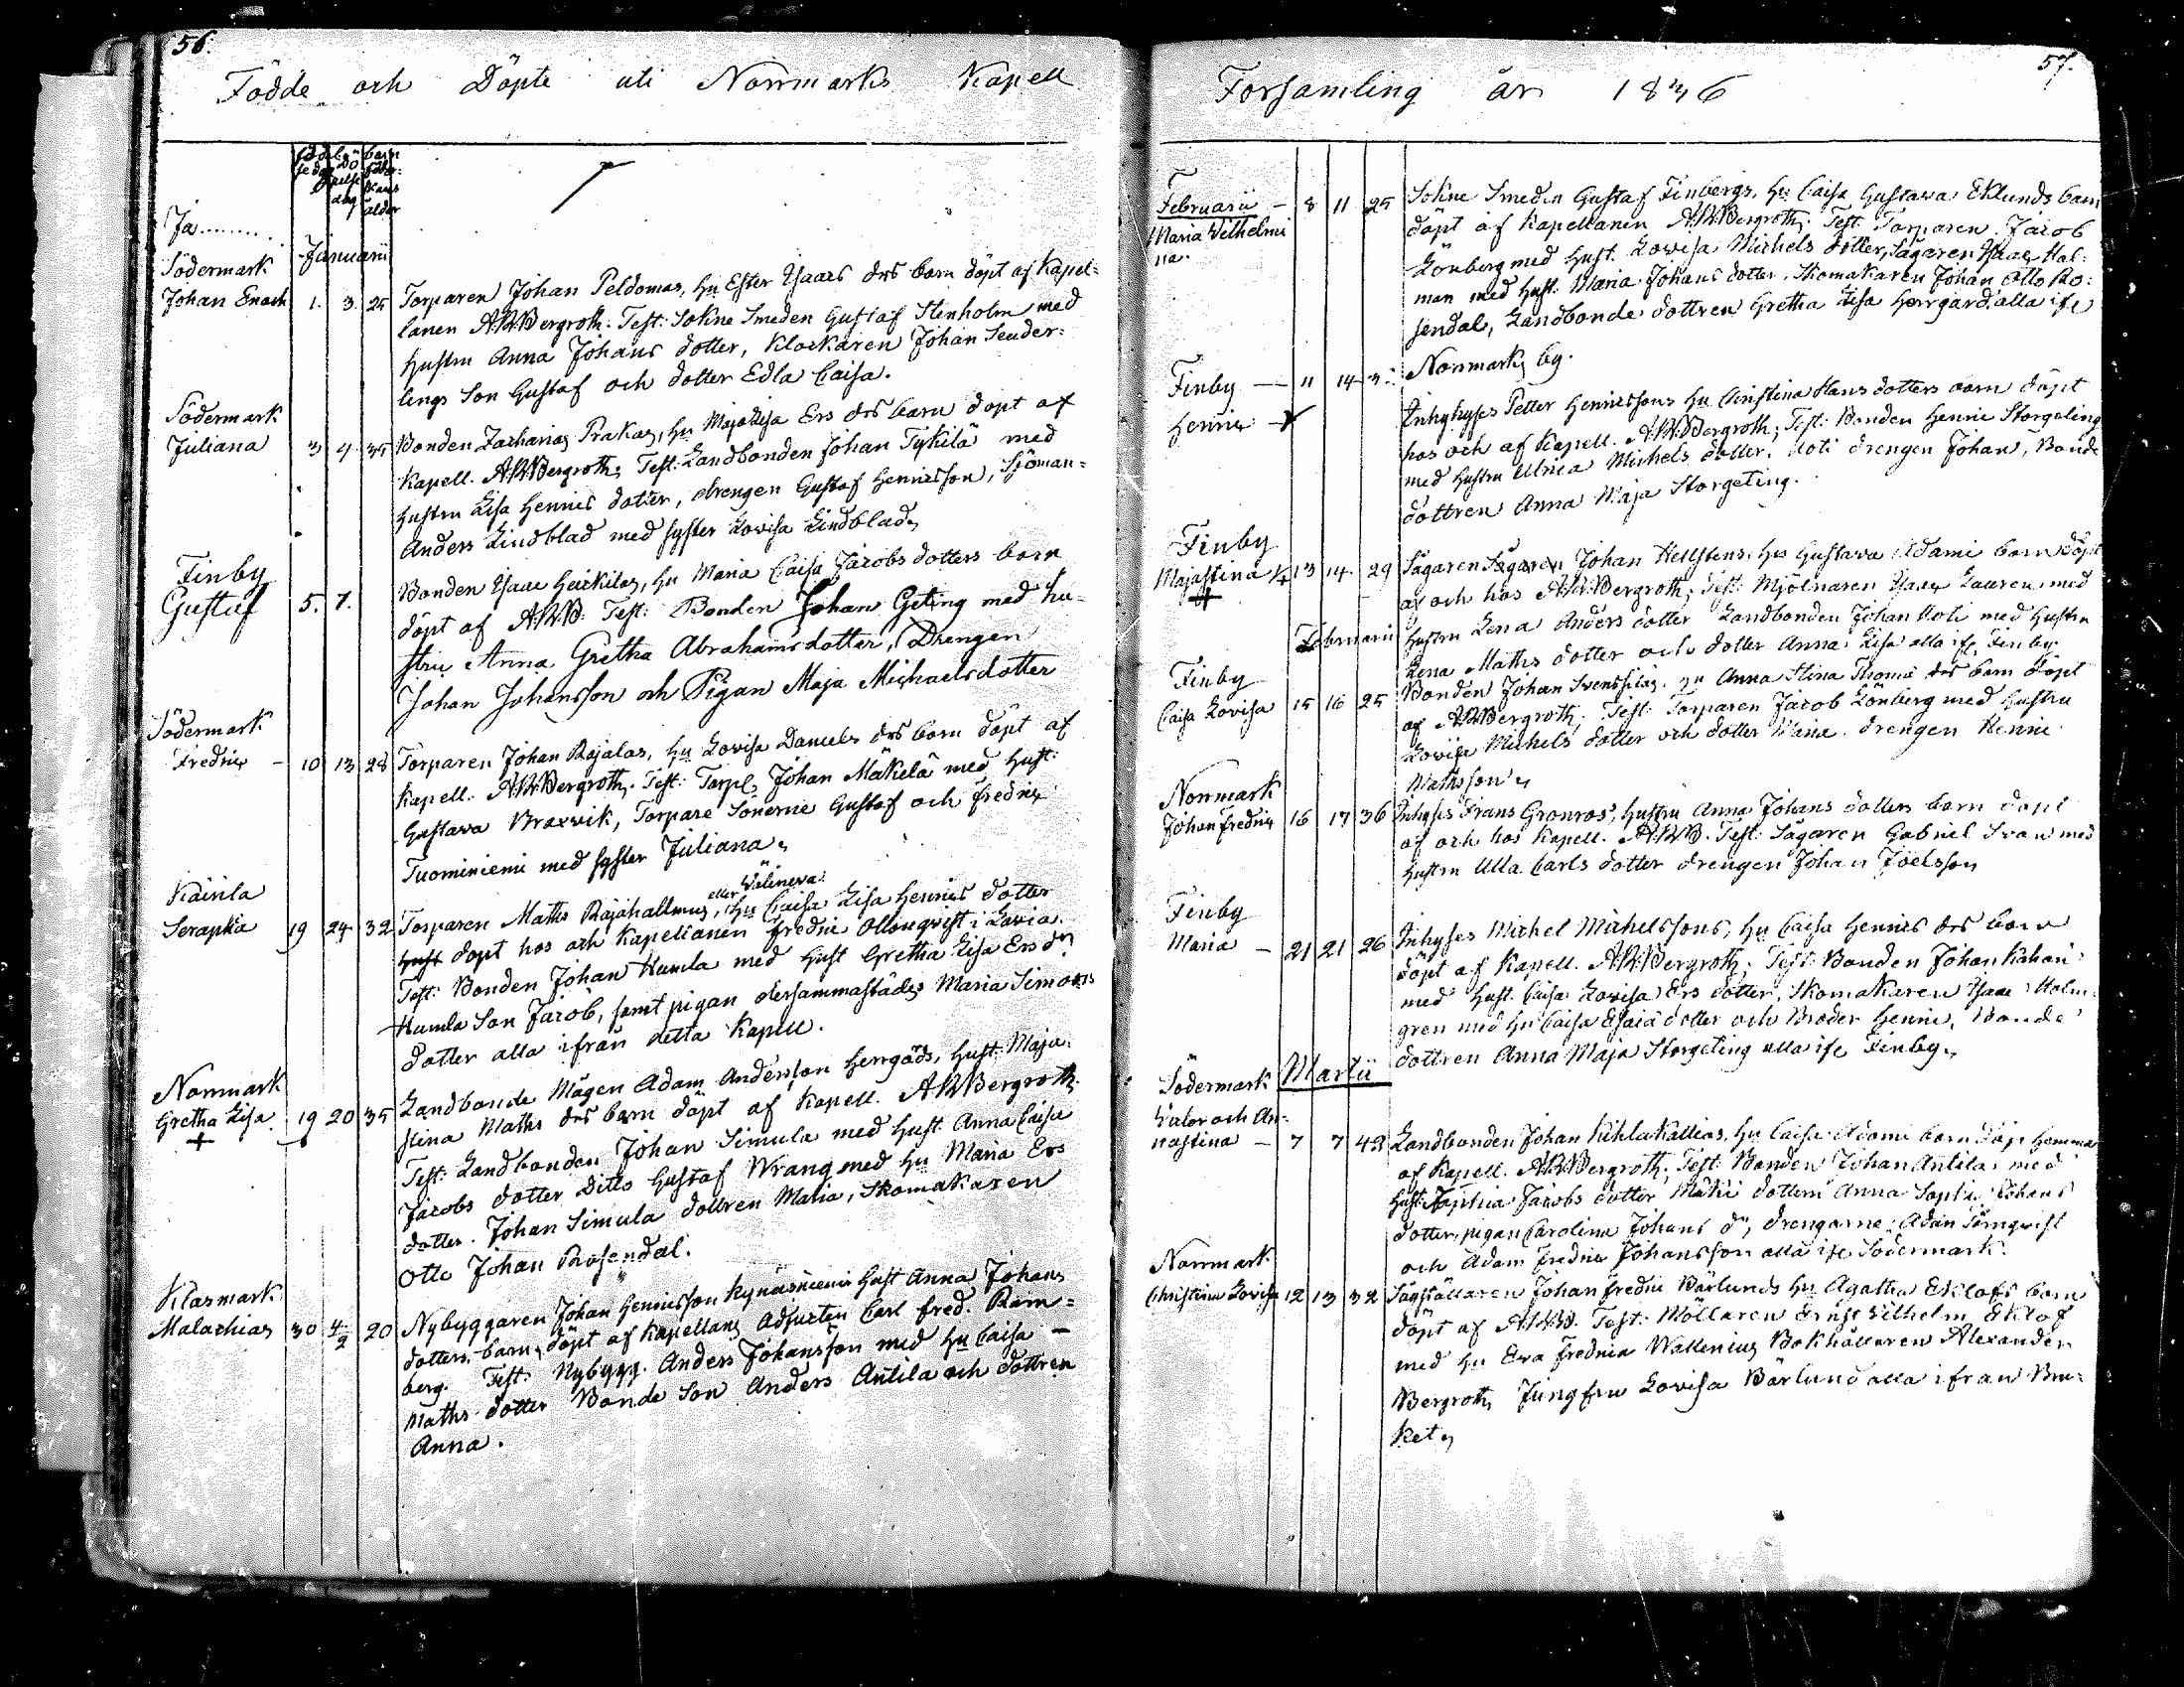 56.
Födde och Döpte uti Norrmarks Kapell
födel: Dö barn
se dag pelse föder:
dag skans
ålder
Ja........
Januarii
Södermark
Johan Enoch 1. 3. 25 Torparen Johan Peldomas, Hu Ester Isaacs drs barn döpt af Kapel-
lanen A.W.Bergroth. Test: Sokne Smeden Gustaf Stenholm med
hustru Anna Johans dotter, Klockaren Johan Sender-
lings Son Gustaf och dotter Edla Caisa.
Södermark
Juliana 3 4 35 Bonden Zacharias Prakas, hu Maja Lisa Ers drs barn döpt af
Kapell. A.W.Bergroth; Test: Landbonden Johan Tykilä med
hustru Lisa Henrics dotter, drengen Gustaf Henricsson, Sjöman-
Anders Lindblad med syster Lovisa Lindblad.
Finby
Gustaf 5. 7. Bonden Isaac Heickilas, hu Maria Caisa Jacobs dotters barn
döpt af A.W.B. Test: Bonden Johan Geting med hu-
stru Anna Gretha Abrahamsdotter, Drengen
Johan Johansson och Pigan Maja Michaelsdotter
Södermark
Fredric - 10 13 28 Torparen Johan Rajalas, hu Lovisa Daniels drs barn döpt af
Kapell. A.W.Bergroth. Test: Torp. Johan Mäkelä med Hust:
Gustava Braxvik, Torpare Sönerne Gustaf och Fredric
Tuominiemi med syster Juliana.
Kairila
Serapkia 19 24 32 Torparen Maths Rajahallmus, eller Välineva: Hu Caisa Lisa Henrics dotter
hust döpt hos och Kapellanen Fredric Ollonqvist i Lavia.
Test: Bonden Johan Humla med Hust Gretha Lisa Ers dr
Humla Son Jacob, samt pigan dersammastädes Maria Simons
dotter alla ifrån detta Kapell.
Norrmark
Gretha Lisa 19 20 35 Landbonde Mågen Adam Andersson Herrgåds, Hust: Maja
+ stina Maths drs barn döpt af Kapell. A.W.Bergroth.
Test: Landbonden Johan Simula med Hust. Anna Caisa
Jacobs dotter Ditto Gustaf Wrang med hu Maria Ers
dotter. Johan Simula dottren Maria, Skomakaren
Otto Johan Rosendal.
Klasmark
Malachias 30 4/2 20 Nybyggaren Johan Henricsson Kynäsniemi Hust Anna Johans
dotters barn, döpt af Kapellans Adjuncten Carl Fred. Ram-
berg. Test: Nybygg. Anders Johansson med hu Caisa -
Maths dotter Bonde Son Anders Antila och dottren
Anna.
57.
Forsamling år 1836
Februarii - 8 11 25 Sokne Smeden Gustaf Finbergs, Hu Caisa Gustava Eklunds barn
Maria Vilhelmi
na. döpt af Kapellanen A.W.Bergroth; Test. Torparen Jacob
Lönberg med Hust. Lovisa Michels dotter, Sågaren Isaac Hol-
man med Hust. Maria Johans dotter, Skomakaren Johan Otto Ro-
sendal, Landbonde dottren Gretha Lisa Herrgård alla ifr.
Norrmarks by.
Finby - 11 14 3
Henric Inhyhyses Petter Henricssons hu Christina Hans dotters barn döpt
hos och af Kapell. A.W.Bergroth; Test: Bonden Henric Storgeting
med hustru Ulrica Michels dotter. Koti drengen Johan, Bonde
dottren Anna Maja Storgeting.
Finby
Majastina 13 14 29 Sågaren Sågaren Johan Hellstens, hu Gustava Adami barn döpt
+ af och hos A.W.Bergroth; Test: Mjölnaren Isaac Lauren med
Februarii hustru Lena Anders dotter Landbonden Johan Koti med hustru
Lena Maths dotter och dotter Anna Lisa alla ifr. Finby
Finby
Caisa Lovisa 15 16 25 Bonden Johan Svenssilas, hu Anna Stina Thomä drs barn döpt
af A.W.Bergroth; Test: Torparen Jacob Lönberg med hustru
Lovisa Michels dotter och dotter Maria. drengen Henric
Mathsson.
Norrmark
Johan Fredric 16 17 36 Inhyses Frans Gronroos, hustru Anna Johans dotters barn döpt
af och hos Kapell. A.W.B. Test: Sågaren Gabriel Svan med
hustru Ulla Carls dotter drengen Johan Joelsson
Finby
Maria - 21 21 26 Inhyses Michel Michelssons, hu Caisa Henrics drs barn
döpt af Kapell. A.W.Bergroth; Test: Bonden Johan Kahari
med Hust. Caisa Lovisa Ers dotter, Skomakaren Isaac Holm-
gren med hu Caisa Esaiä dotter och Broder Henric, Bonde
dottren Anna Maja Storgeting alla ifr. Finby.
Södermark Martii
Valor och An-
nastina - 7 7 42 Landbonden Johan Kihlakallias, hu Caisa Adami barn döp hemma
af Kapell. A.W.Bergroth; Test Bonden Johan Antila med
Hust: Jacobs dotter Mäki dottern Anna Sophia Johans
dotter, pigan Carolina Johans dr, drengarne, Adam Törnqvist
och Adam Fredric Johansson alla ifr. Södermark.
Norrmark
Christina Lovisa 12 13 32 Sågställaren Johan Fredric Bärlunds hu Agatha Eklofs barn
döpt af A.W.B. Test: Möllaren Ernst Vilhelm Eklof
med hu Eva Fredrica Wallenius Bokhållaren Alexander
Bergroth, Jungfru Lovisa Bärlund alla ifrån Bru-
ket.